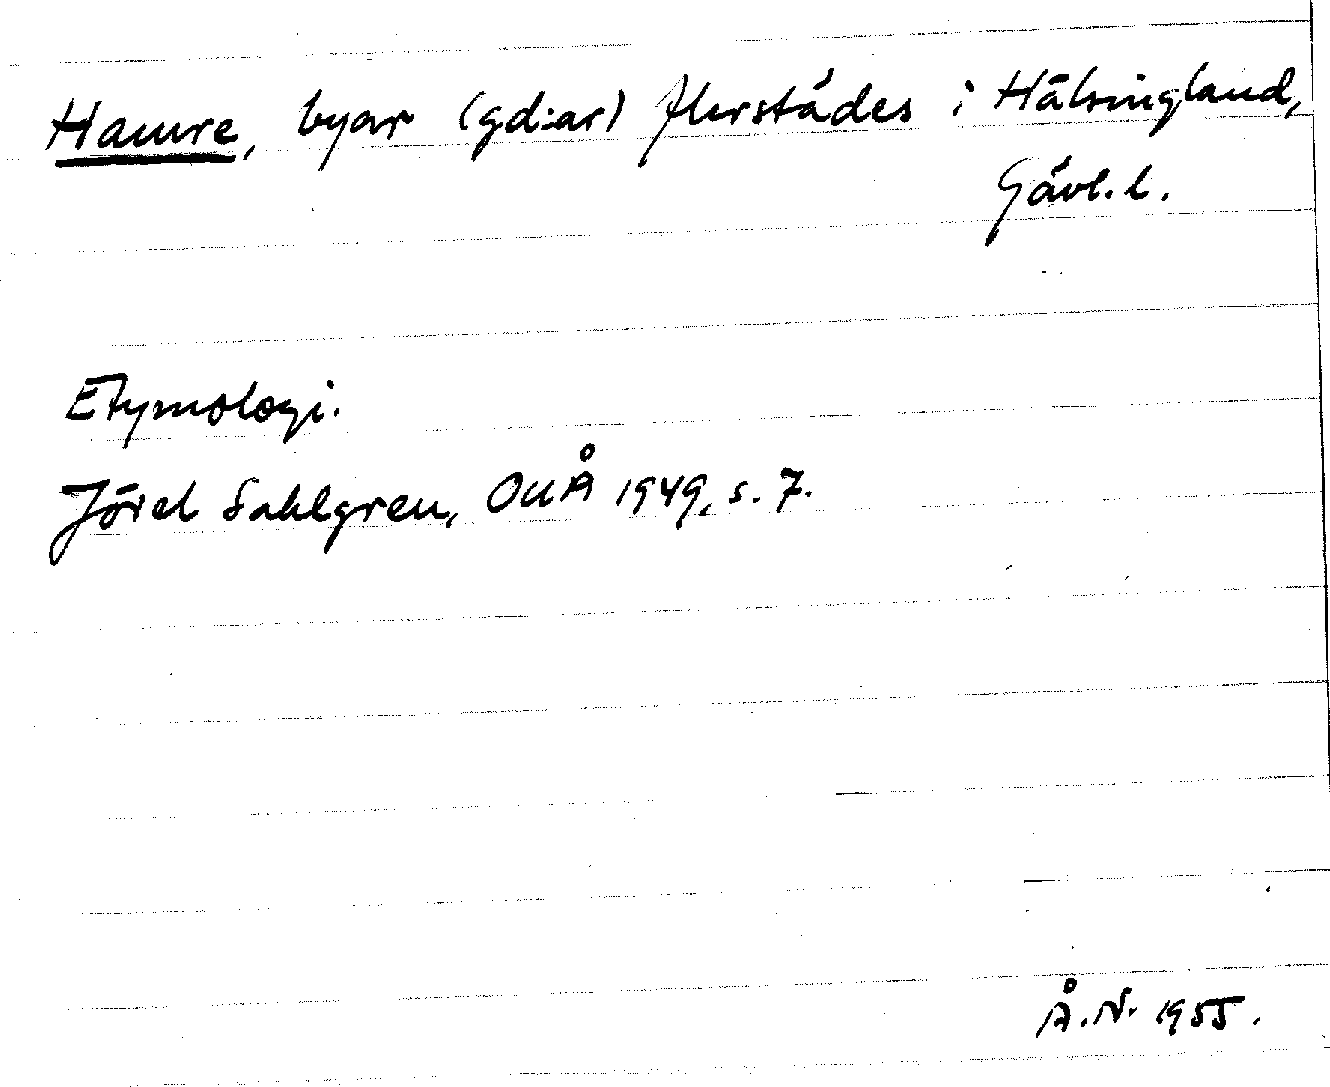 Hamre, byar (gd:ar) flerstädes i Hälsingland,
Gävl. l.
Etymologi.
Jöran Sahlgren, OUÅ 1949, s. 7.
Å.N. 1955.